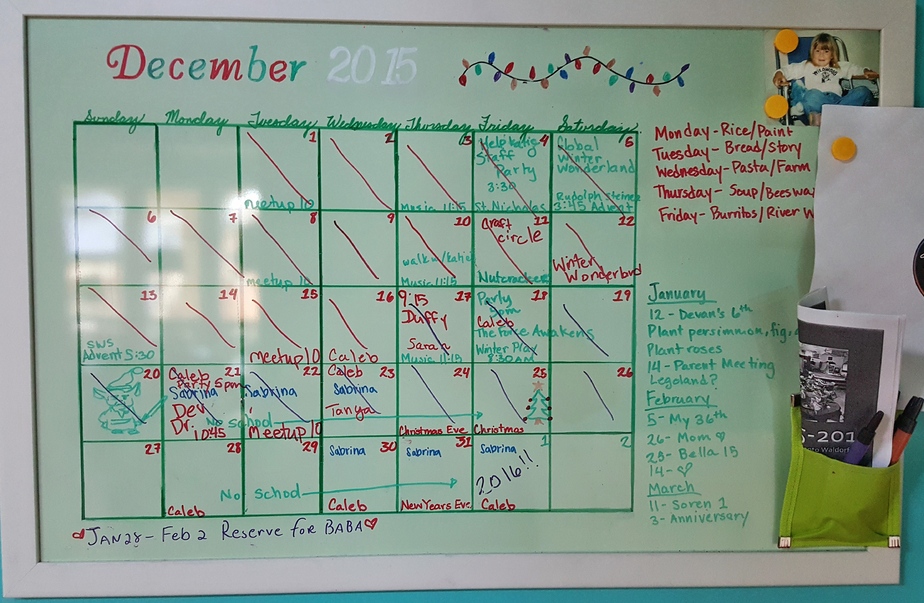 December 2015
Sunday Monday Tuesday Wednesday Thursday Friday Saturday
1
meetup 10
2
3
Music 11:15
4
Help Katie
Staff
Party
3:30
St. Nicholas
5
Global
Winter
Wonderland
Rudolph Steiner
3:45 Advent
6
7
8
meetup 10
9
10
walk w/Katie
Music 11:15
11
Craft
circle
Nutcracker
12
Winter
Wonderland
13
SWS
Advent 5:30
14
15
Meetup 10
16
Caleb
17
9:15
Duffy
Sarah
Music 11:15
18
Party
5pm
Caleb
The Force Awakens
Winter Play
8:30AM
19
20
21
Caleb
Party 5pm
Sabrina
Dev
Dr. 10:45
22
Sabrina
No school
Meetup 10
23
Caleb
Sabrina
Tanya
24
Christmas Eve
25
Christmas
26
27
28
Caleb
29
No school
30
Sabrina
Caleb
31
Sabrina
New Years Eve
1
Sabrina
2016!!
Caleb
2
JAN 28 - Feb 2 Reserve for BABA
Monday - Rice/Paint
Tuesday - Bread/Story
Wednesday - Pasta/Farm
Thursday - Soup/Beeswa
Friday - Burritos/River W
January
12 - Devan's 6th
Plant persimmon, fig,
Plant roses
14 - Parent Meeting
Legoland?
February
5 - My 36th
26 - Mom ♡
25 - Bella 15
14 - ♡
March
11 - Soren 1
3 - Anniversary
-201
Waldorf